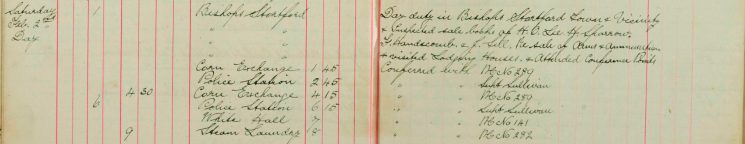 Saturday 1 Bishops Stortford Day duty in Bishops Stortford Town & Vicinity
Feb. 2nd " " & Inspected sale books of H. O. Lee Sparrow,
Day " " F. Handscomb. & F. Sell. Re sale of Arms & Ammunition
" " & visited Lodging Houses. & Attended Conference Points
Corn Exchange 1 45 Conferred with P.C. No 289
Police Station 2 45 " " Supt Sullivan
4 30 Corn Exchange 4 15 " " P.C. No 289
6 Police Station 6 15 " " Supt Sullivan
White Hall 7 " " P.C. No 141
9 Steam Laundry 8 " " P.C. No 282